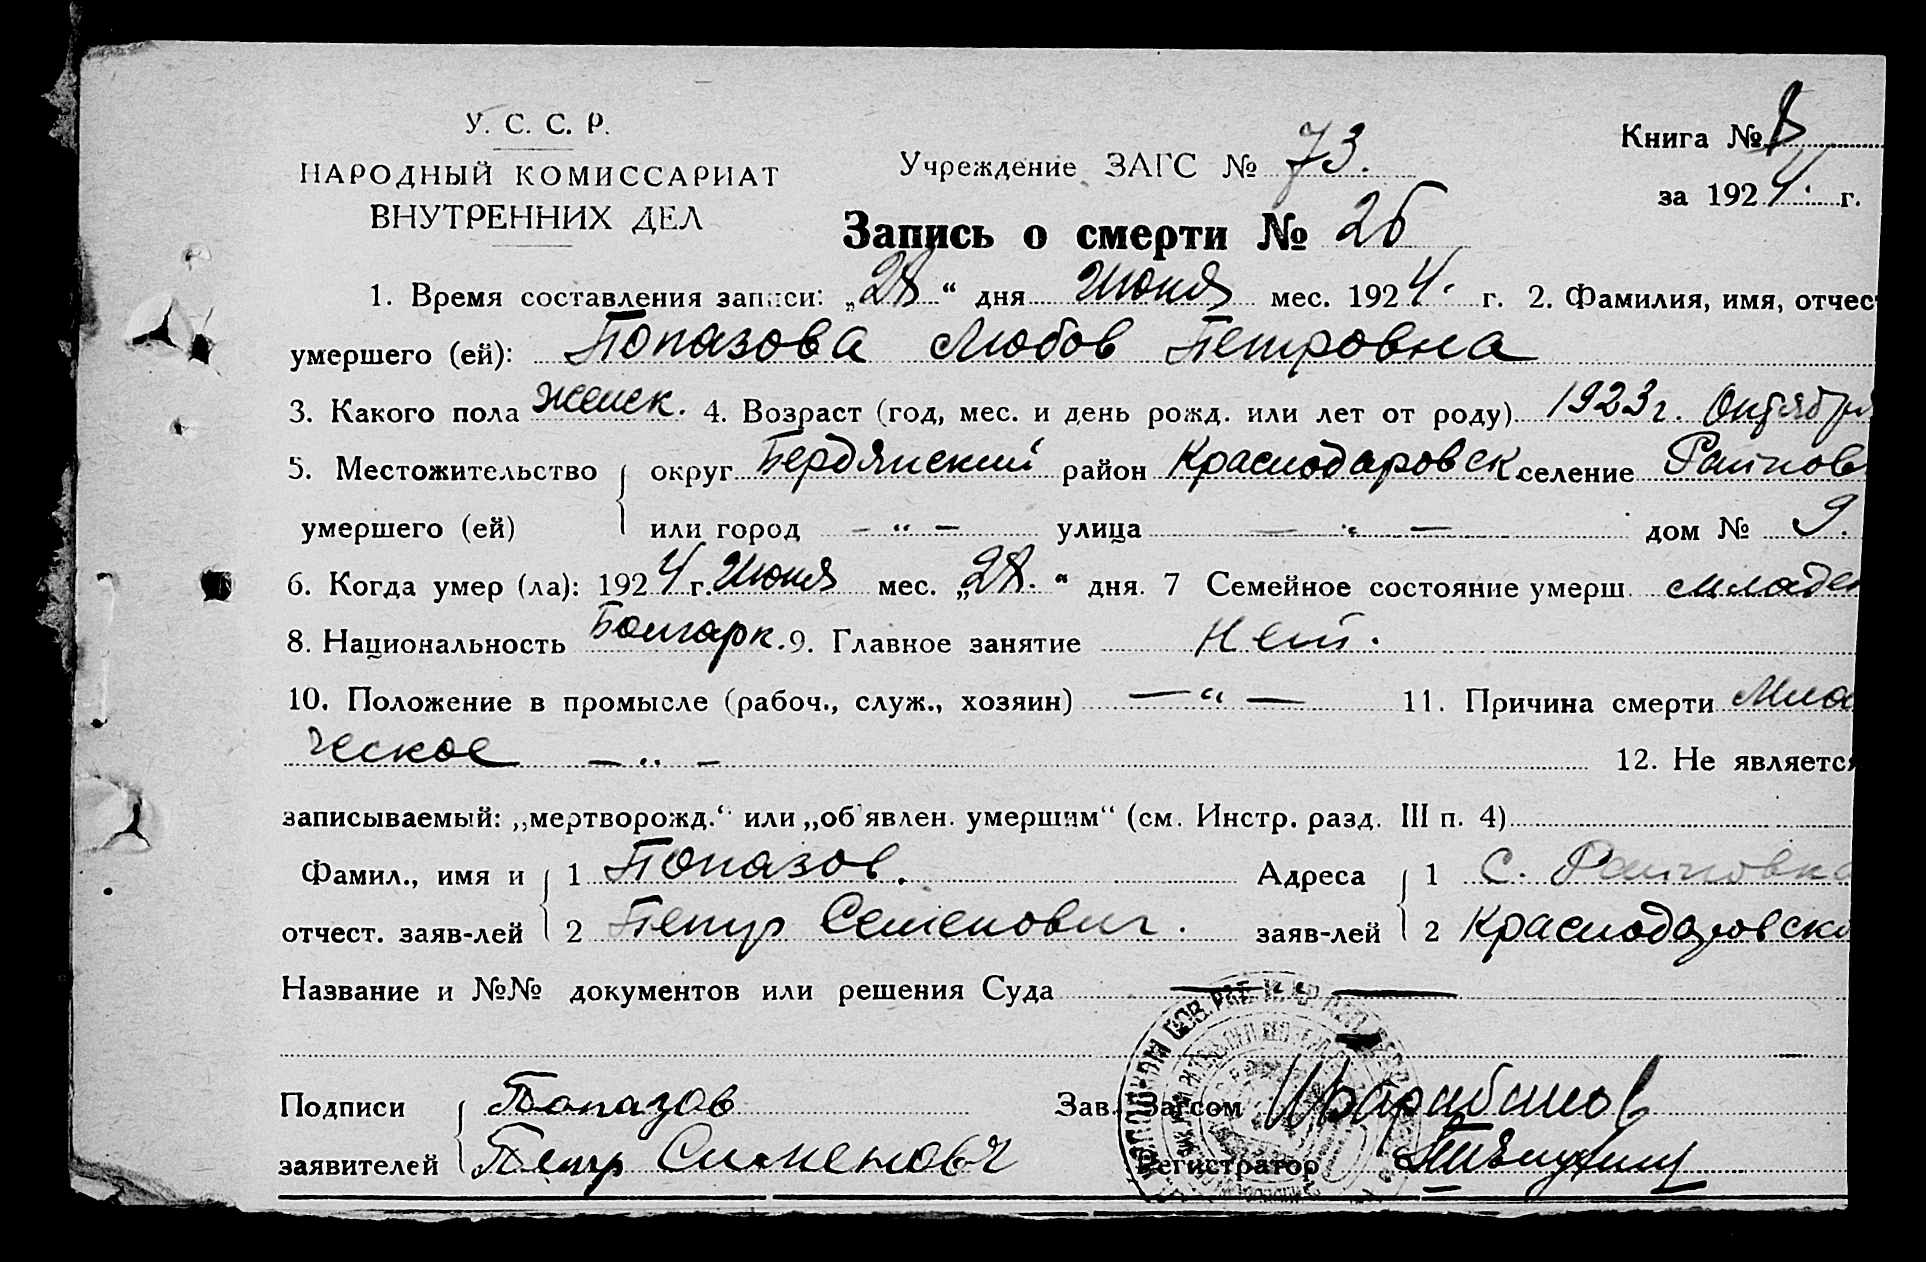 У. С. С. Р.
НАРОДНЫЙ КОМИССАРИАТ
ВНУТРЕННИХ ДЕЛ
Учреждение ЗАГС № 73.
Книга №
за 1924. г.
Запись о смерти № 26
1. Время составления записи: „28“ дня Июня мес. 1924. г. 2. Фамилия, имя, отчес
умершего (ей): Попазова Любов Петровна
3. Какого пола женск. 4. Возраст (год, мес. и день рожд. или лет от роду) 1923 г. Октября
5. Местожительство округ Бердянский район Краснодаровск селение Раиновк
умершего (ей) или город — „ — улица — „ — дом № 9.
6. Когда умер (ла): 1924 г. Июня мес. „28.“ дня. 7 Семейное состояние умерш. младен
8. Национальность Болгарк. 9. Главное занятие Нет.
10. Положение в промысле (рабоч., служ., хозяин) — „ — 11. Причина смерти Мла
ческое — „ —
12. Не является
записываемый: „мертворожд.“ или „об'явлен. умершим“ (см. Инстр. разд. III п. 4)
Фамил., имя и 1 Попазов. Адреса 1 С. Раиновка
отчест. заяв-лей 2 Петр Семенович. заяв-лей 2 Краснодаровско
Название и №№ документов или решения Суда — „ —
Подписи Попазов Зав. Загсом
заявителей Петр Сименовч Регистратор